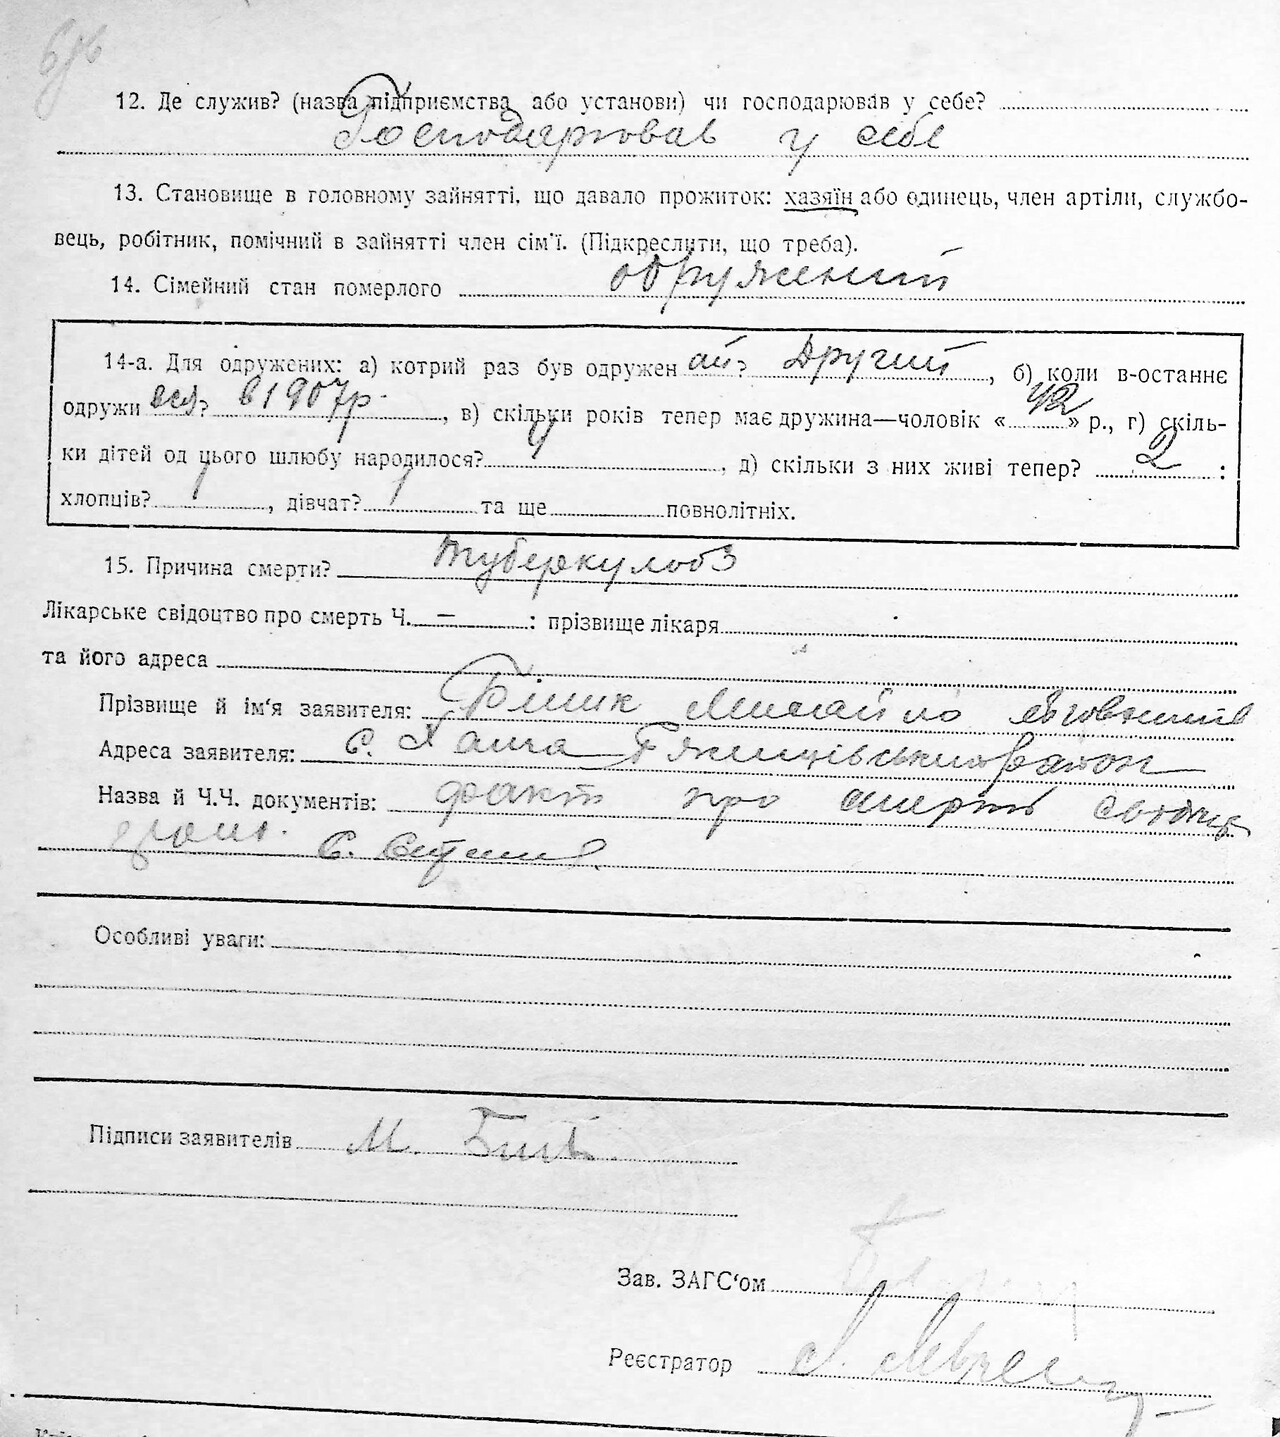 12. Де служив? (назва підприємства або установи) чи господарював у себе?
Господарював у себе
13. Становище в головному зайнятті, що давало прожиток: хазяїн або одинець, член артіли, службо-
вець, робітник, помічний в зайнятті член сім'ї. (Підкреслити, що треба).
14. Сімейний стан померлого одружений
14-а. Для одружених: а) котрий раз був одружен ий? Другий, б) коли в-останнє
одружи вся? в 1907р., в) скільки років тепер має дружина—чоловік «42» р., г) скіль-
ки дітей од цього шлюбу народилося? 4, д) скільки з них живі тепер? 2 :
хлопців? 1, дівчат? 1 та ще повнолітніх.
15. Причина смерти? туберкульоз
Лікарське свідоцтво про смерть Ч. — : прізвище лікаря
та його адреса
Прізвище й ім'я заявителя: Михайло
Адреса заявителя: с. район
Назва й Ч.Ч. документів: про смерть
с.
Особливі уваги:
Підписи заявителів М.
Зав. ЗАГС'ом
Реєстратор